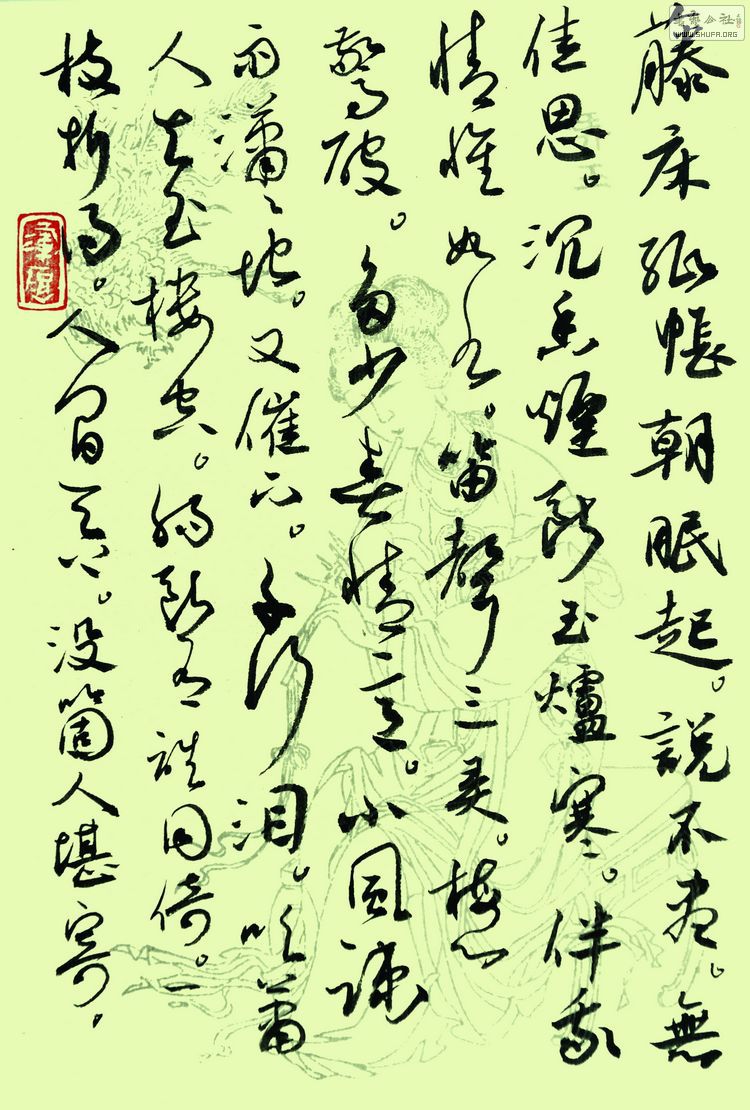 藤床紙帳朝眠起。說不盡。無
佳思。沉香煙斷玉爐寒。伴我
情懷如水。笛聲三弄。梅心
驚破。多少春情意。小風疎
雨瀟〻地。又催下。千行泪。吹簫
人去玉楼空。腸斷与誰同倚。一
枝折得。人間天上。没箇人堪寄。
WWW.SHUFA.ORG